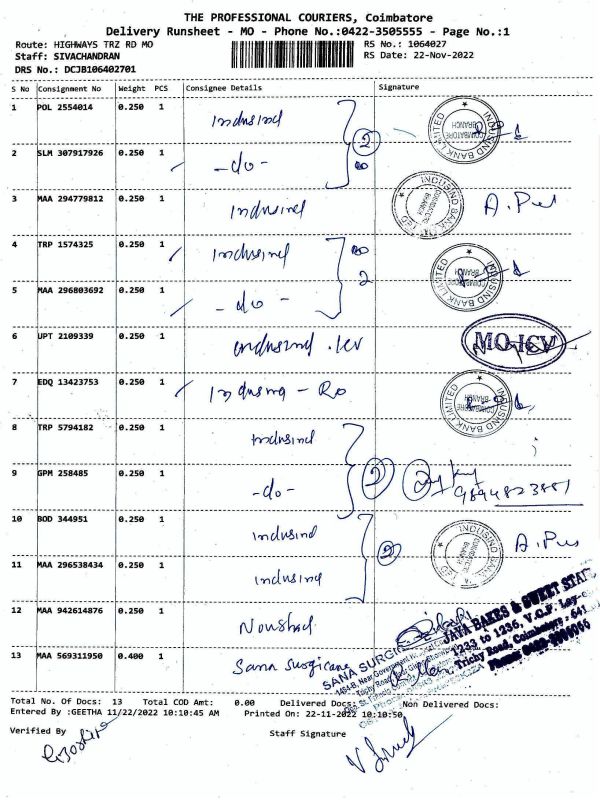 THE PROFESSIONAL COURIERS, Coimbatore
Delivery Runsheet - MO - Phone No.:0422-3505555 - Page No.:1
Route: HIGHWAYS TRZ RD MO RS No.: 1064027
Staff: SIVACHANDRAN RS Date: 22-Nov-2022
DRS No.: DCJB106402701
S No Consignment No Weight PCS Consignee Details Signature
1 POL 2554014 0.250 1 Indusind
2 SLM 307917926 0.250 1 -do- 2
3 MAA 294779812 0.250 1 Indusind
4 TRP 1574325 0.250 1 Indusind
5 MAA 296803692 0.250 1 -do- 2
6 UPT 2109339 0.250 1 Indusind . ICV MO-ICV
7 EDQ 13423753 0.250 1 Indusind - Ro
8 TRP 5794182 0.250 1 Indusind
9 GPM 258485 0.250 1 -do- 2 9894823881
10 BOD 344951 0.250 1 Indusind
11 MAA 296538434 0.250 1 Indusind 2
12 MAA 942614876 0.250 1
13 MAA 569311950 0.400 1 Sana Surgicane
INDUSIND BANK LIMITED
COIMBATORE BRANCH
INDUSIND BANK LIMITED
COIMBATORE BRANCH
INDUSIND BANK LIMITED
COIMBATORE BRANCH
INDUSIND BANK LIMITED
COIMBATORE BRANCH
INDUSIND BANK
COIMBATORE BRANCH
JAYA BAKES & SWEET
1233 to 1236, V.O.P.
Trichy Road, Coimbatore - 641
SANA SURGI
Total No. Of Docs: 13 Total COD Amt: 0.00 Delivered Docs: Non Delivered Docs:
Entered By :GEETHA 11/22/2022 10:10:45 AM Printed On: 22-11-2022 10:10:50
Verified By Staff Signature